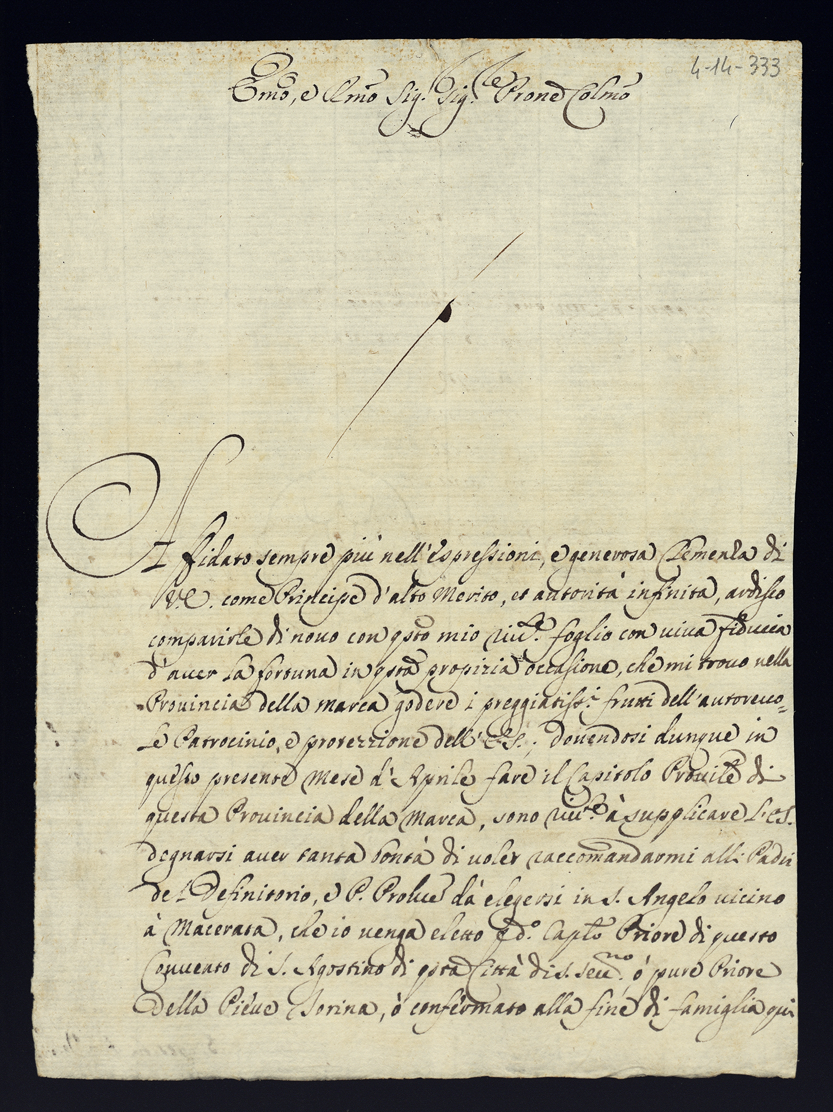 4-14-333
Emo, e Rmo Sig.r Sig.r Prone Colmo
Affidato sempre più nell'espressioni, e generosa Clemenza di
V.E. come Principe d'alto Merito, et autorità infinita, ardisco
comparirle di novo con qsto mio riv.e foglio con viva fiducia
d'aver la fortuna in qsta propizia occasione, che mi trovo nella
Provincia della Marca godere i preggiatiss.i frutti dell'autorevo=
le Patrocinio, e protezzione dell'E.S. dovendosi dunque in
questo presente Mese d'Aprile fare il Capitolo Provile di
questa Provincia della Marca, sono riv.te à supplicare L'E.S.
degnarsi aver tanta bontà di voler raccomandarmi alli Padri
del Definitorio, e P. da elegersi in S. Angelo vicino
à Macerata, che io venga eletto Caplo Priore di questo
Convento di S. Agostino di qsta Città di S. Sev.no, ó pure Priore
della Pieve Torina, ò confermato alla fine di famiglia qui